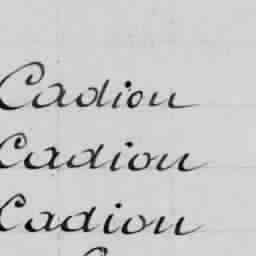 Cadiou
Cadiou
Cadiou